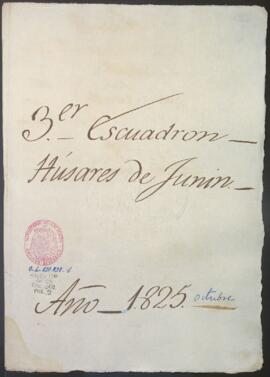 3.er Escuadron
Húsares de Junin
Año 1825. octubre